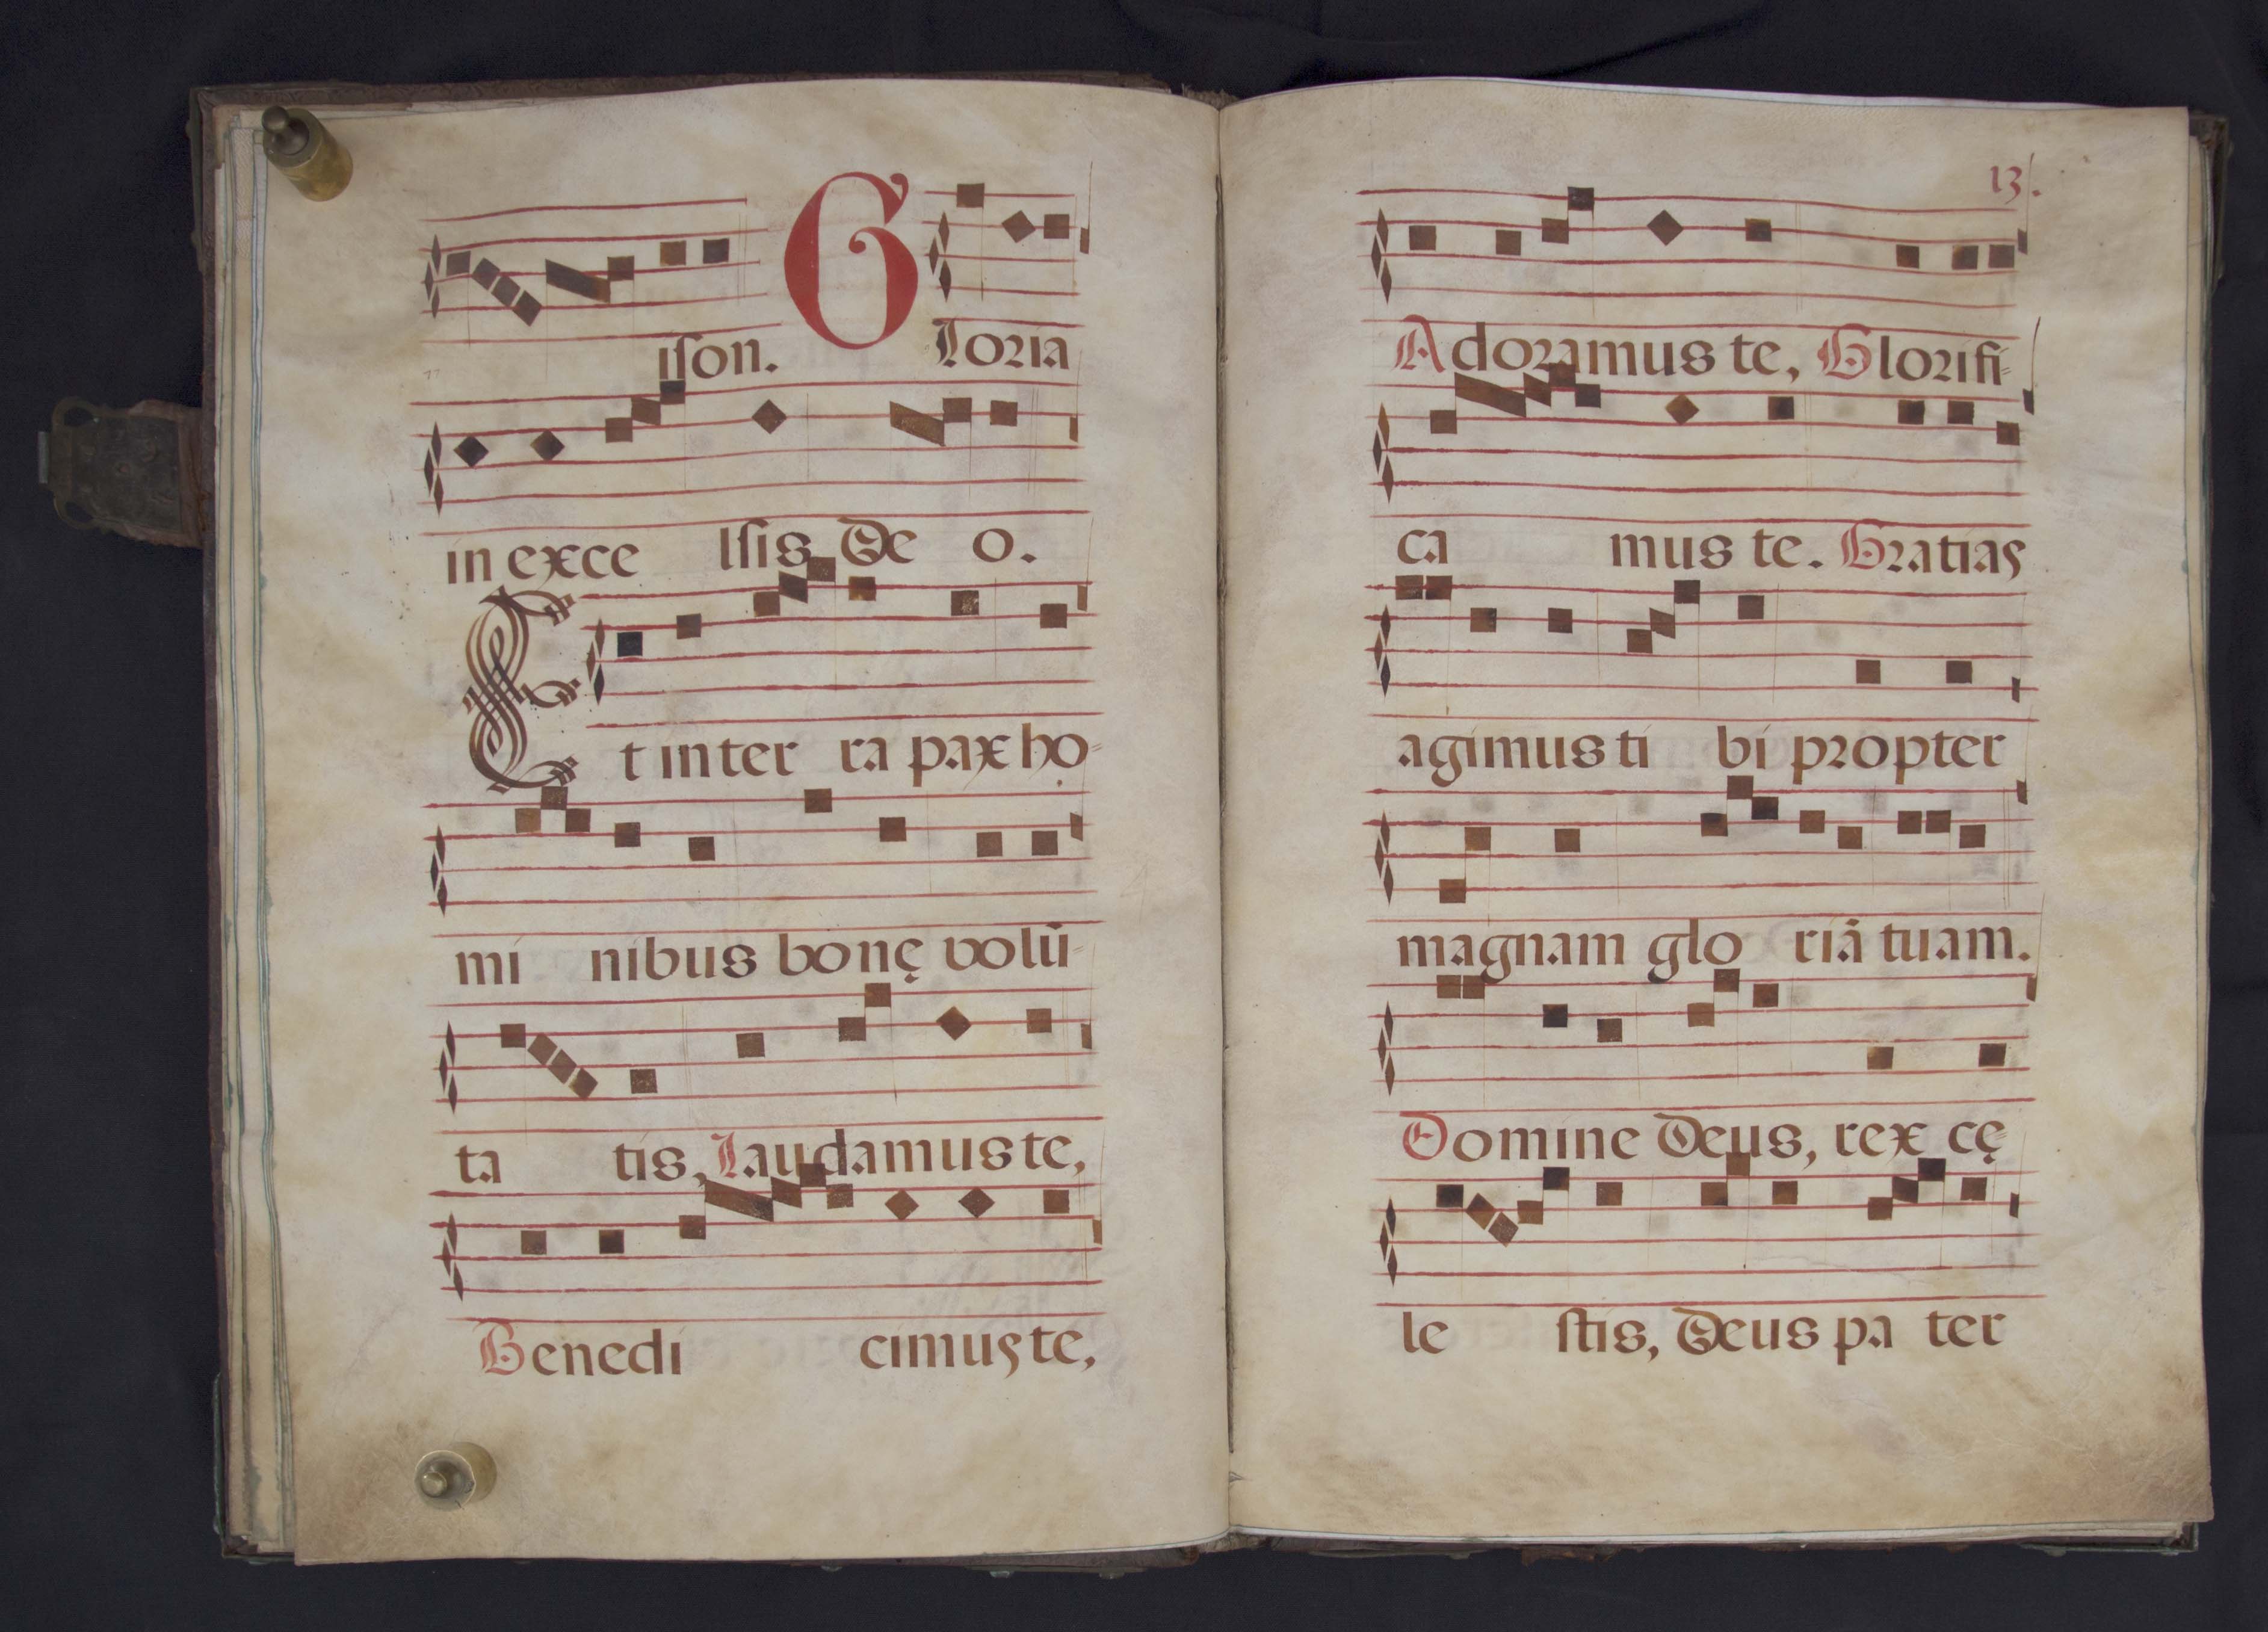 ison. Gloria
in exce lsis De o.
Et in ter ra pax ho-
mi nibus bonę volū-
ta tis, Laudamus te,
Benedi cimus te,
13.
Adoramus te, Glorifi-
ca mus te. Gratias
agimus ti bi propter
magnam glo riā tuam.
Domine Deus, rex cę-
le stis, Deus pa ter